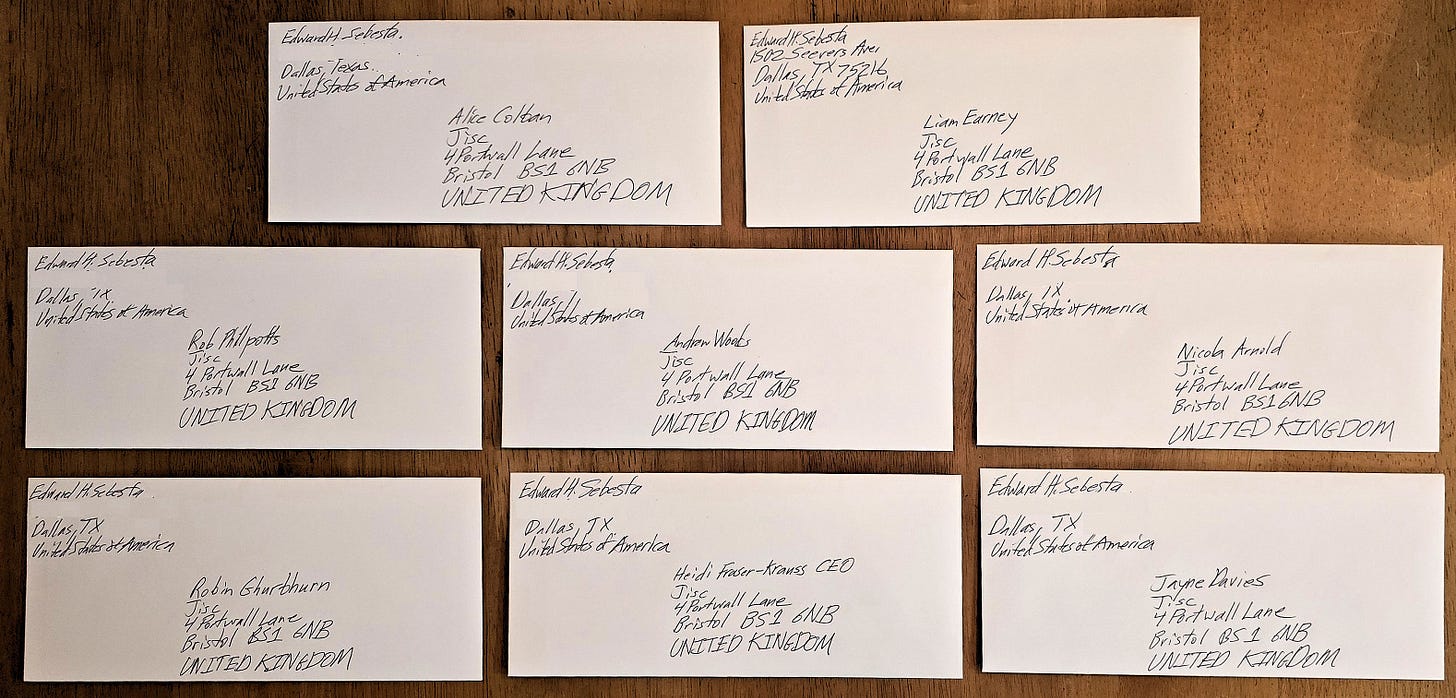 Edward H. Sebesta.
Dallas, Texas.
United States of America
Alice Colban
Jisc
4 Portwall Lane
Bristol BS1 6NB
UNITED KINGDOM
Edward H. Sebesta
1502 Seevers Ave.
Dallas, TX 75216
United States of America
Liam Earney
Jisc
4 Portwall Lane
Bristol BS1 6NB
UNITED KINGDOM
Edward H. Sebesta
Dallas, TX
United States of America
Rob Phillpotts
Jisc
4 Portwall Lane
Bristol BS1 6NB
UNITED KINGDOM
Edward H. Sebesta
Dallas,
United States of America
Andrew
Jisc
4 Portwall Lane
Bristol BS1 6NB
UNITED KINGDOM
Edward H. Sebesta
Dallas, TX
United States of America
Nicola Arnold
Jisc
4 Portwall Lane
Bristol BS1 6NB
UNITED KINGDOM
Edward H. Sebesta
Dallas, TX
United States of America
Robin Ghurbhurn
Jisc
4 Portwall Lane
Bristol BS1 6NB
UNITED KINGDOM
Edward H. Sebesta
Dallas, TX
United States of America
Heidi Fraser-Krauss CEO
Jisc
4 Portwall Lane
Bristol BS1 6NB
UNITED KINGDOM
Edward H. Sebesta
Dallas, TX
United States of America
Jayne Davies
Jisc
4 Portwall Lane
Bristol BS1 6NB
UNITED KINGDOM